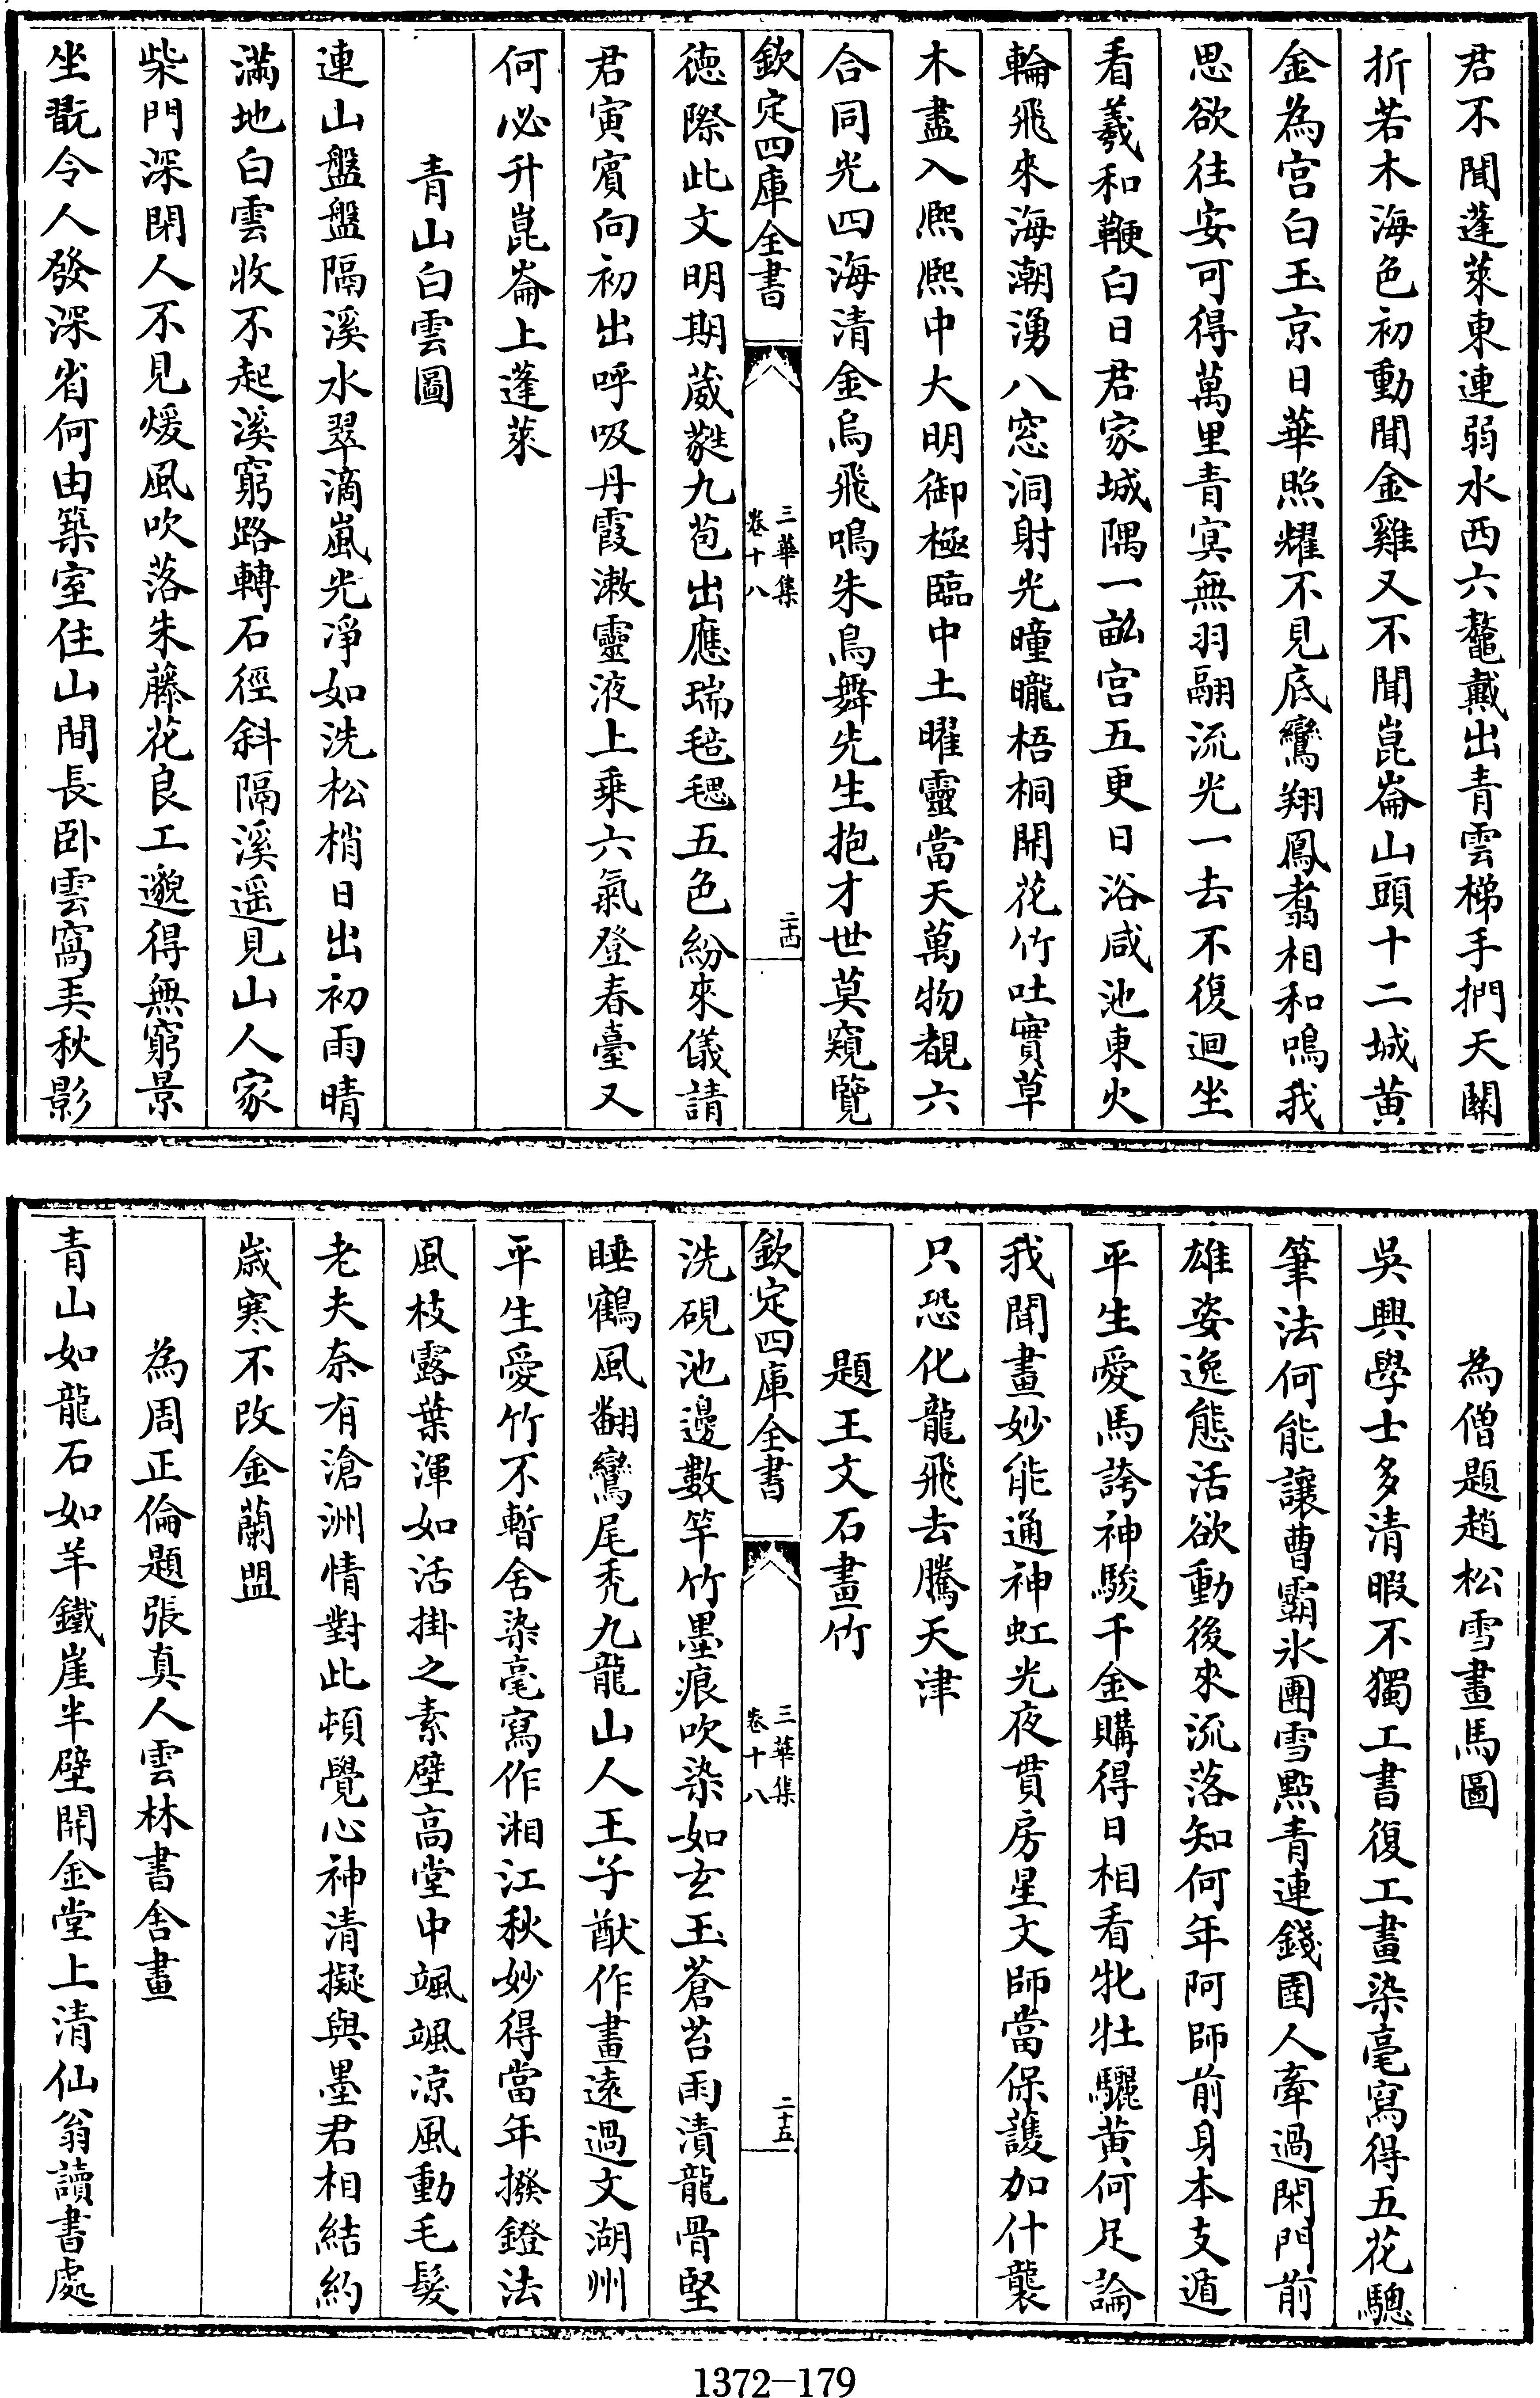 君不聞蓬萊東連弱水西六鼇戴出青雲梯手捫天關
折若木海色初動聞金雞又不聞崑崙山頭十二城黄
金為宫白玉京日華照耀不見底鸞翔鳳翥相和鳴我
思欲往安可得萬里青冥無羽翮流光一去不復迴坐
看羲和鞭白日君家城隅一畝宫五更日浴咸池東火
輪飛來海潮湧八窓洞射光曈曨梧桐開花竹吐實草
木盡入熈熈中大明御極臨中土曜靈當天萬物覩六
合同光四海清金烏飛鳴朱鳥舞先生抱才世莫窺覽
欽定四庫全書
三華集
卷十八
二十四
徳際此文明期葳蕤九苞出應瑞毰毸五色紛來儀請
君寅賓向初出呼吸丹霞漱靈液上乗六氣登春臺又
何必升崑崙上蓬萊
青山白雲圖
連山盤盤隔溪水翠滴嵐光凈如洗松梢日出初雨晴
滿地白雲收不起溪窮路轉石徑斜隔溪遥見山人家
柴門深閉人不見煖風吹落朱藤花良工邈得無窮景
坐翫令人發深省何由築室住山間長卧雲窩弄秋影
為僧題趙松雪畫馬圖
吳興學士多清暇不獨工書復工畫染毫寫得五花驄
筆法何能讓曹霸氷團雪㸃青連錢圉人牽過閑門前
雄姿逸態活欲動後來流落知何年阿師前身本支遁
平生愛馬誇神駿千金購得日相看牝牡驪黄何足論
我聞畫妙能通神虹光夜貫房星文師當保護加什襲
只恐化龍飛去騰天津
題王文石畫竹
欽定四庫全書
三華集
卷十八
二十五
洗硯池邊數竿竹墨痕吹染如玄玉蒼苔雨漬龍骨堅
睡鶴風翻鸞尾秃九龍山人王子猷作畫遠過文湖州
平生愛竹不暫舍染毫寫作湘江秋妙得當年撥鐙法
風枝露葉渾如活掛之素壁高堂中颯颯凉風動毛髮
老夫奈有滄洲情對此頓覺心神清擬與墨君相結約
歳寒不改金蘭盟
為周正倫題張真人雲林書舍畫
青山如龍石如羊鐵崖半壁開金堂上清仙翁讀書處
1372—179